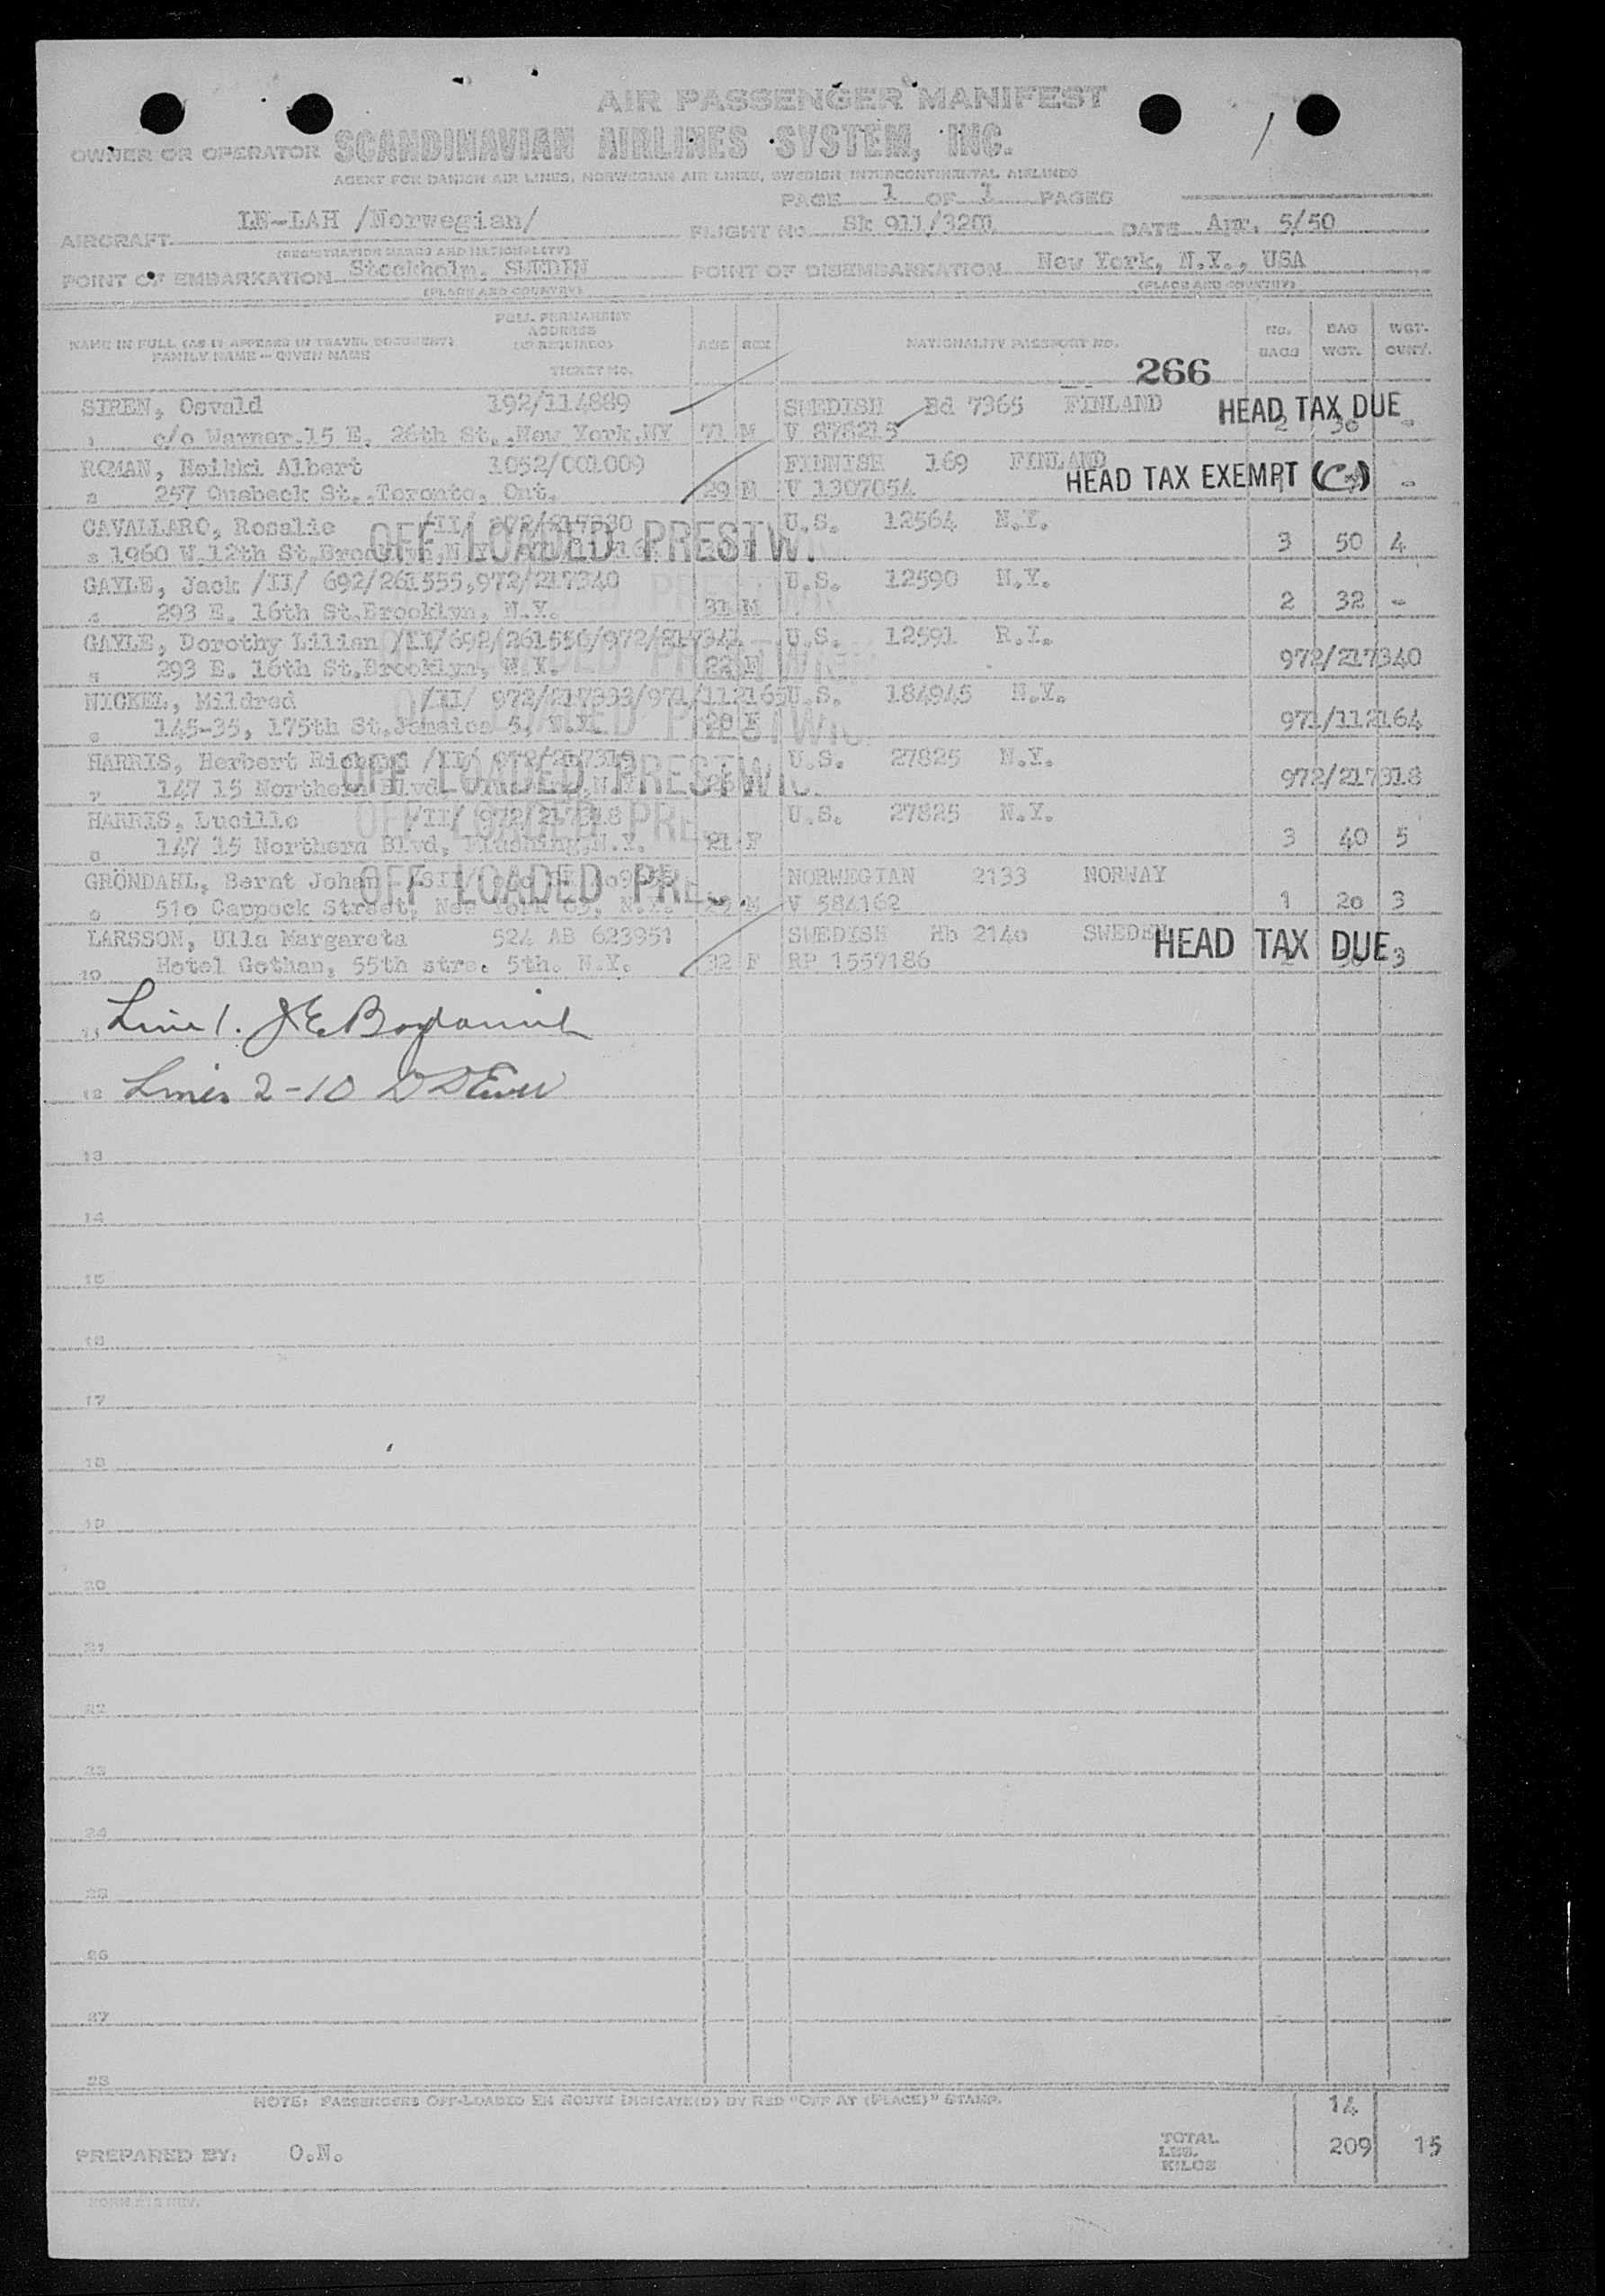 AIR PASSENGER MANIFEST
OWNER OR OPERATOR SCANDINAVIAN AIRLINES SYSTEM, INC.
AGENT FOR DANISH AIR LINES, NORWEGIAN AIR LINES, SWEDISH INTERCONTINENTAL AIRLINES
PAGE 1 OF 1 PAGES
AIRCRAFT LN-LAH /Norwegian/ FLIGHT NO. Sk 911/ DATE Apr. 5/50
(REGISTRATION MARKS AND NATIONALITY)
POINT OF EMBARKATION Stockholm, SWEDEN POINT OF DISEMBARKATION New York, N.Y., USA
(PLACE AND COUNTRY) (PLACE AND COUNTRY)
NAME IN FULL (AS IT APPEARS IN TRAVEL DOCUMENT) FAMILY NAME - GIVEN NAME
FULL PERMANENT ADDRESS (IF REQUIRED) TICKET NO.
AGE SEX NATIONALITY PASSPORT NO. No. BAGS BAG WGT. WGT.
266
SIREN, Osvald 192/114889 SWEDISH Bd 7365 FINLAND HEAD TAX DUE
1 c/o Warner.15 E. 26th St.,New York.NY 71 M V 878215 2 30 -
ROMAN, Heikki Albert 1052/001009 FINNISH 169 FINLAND
2 257 St.,Toronto, Ont. 29 M V 1307054 HEAD TAX EXEMPT (C-) -
CAVALLARO, Rosalie /II/ U.S. 12564 N.Y.
3 1960 W.12th St. OFF LOADED PRESTWI 3 50 4
GAYLE, Jack /II/ 692/261555,972/217340 U.S. 12590 N.Y.
4 293 E. 16th St.Brooklyn, N.Y. 31 M 2 32 -
GAYLE, Dorothy Lilian /II/692/261556/972/217341 U.S. 12591 N.Y.
5 293 E. 16th St.Brooklyn, N.Y. 22 F 972/217340
NICKEL, Mildred /II/ 972/217333/971/112165 U.S. 184945 N.Y.
6 145-35, 175th St.Jamaica 5, N.Y. 28 F 971/112164
HARRIS, Herbert Richard /II/ 972/217319 U.S. 27825 N.Y.
7 147 15 Northern Blvd, OFF LOADED PRESTWIC 972/217318
HARRIS, Lucille /II/ 972/217318 U.S. 27825 N.Y.
8 147 15 Northern Blvd, Flushing,N.Y. 21 F 3 40 5
GRÖNDAHL, Bernt Johan OFF LOADED PRES NORWEGIAN 2133 NORWAY
9 51o Cappock Street, New York 63, N.Y. 29 M V 584162 1 2o 3
LARSSON, Ulla Margareta 524 AB 623951 SWEDISH Hb 214o SWEDEN HEAD TAX DUE
10 Hotel Gotham, 55th stre. 5th. N.Y. 32 F RP 1557186 3
Line 1.
12 Lines 2-10
13
14
15
16
17
18
19
20
21
22
23
24
25
26
27
28
NOTE: PASSENGERS OFF-LOADED EN ROUTE INDICATE(D) BY RED "OFF AT (PLACE)" STAMP.
14
PREPARED BY: O.N. TOTAL LBS. KILOS 209 15